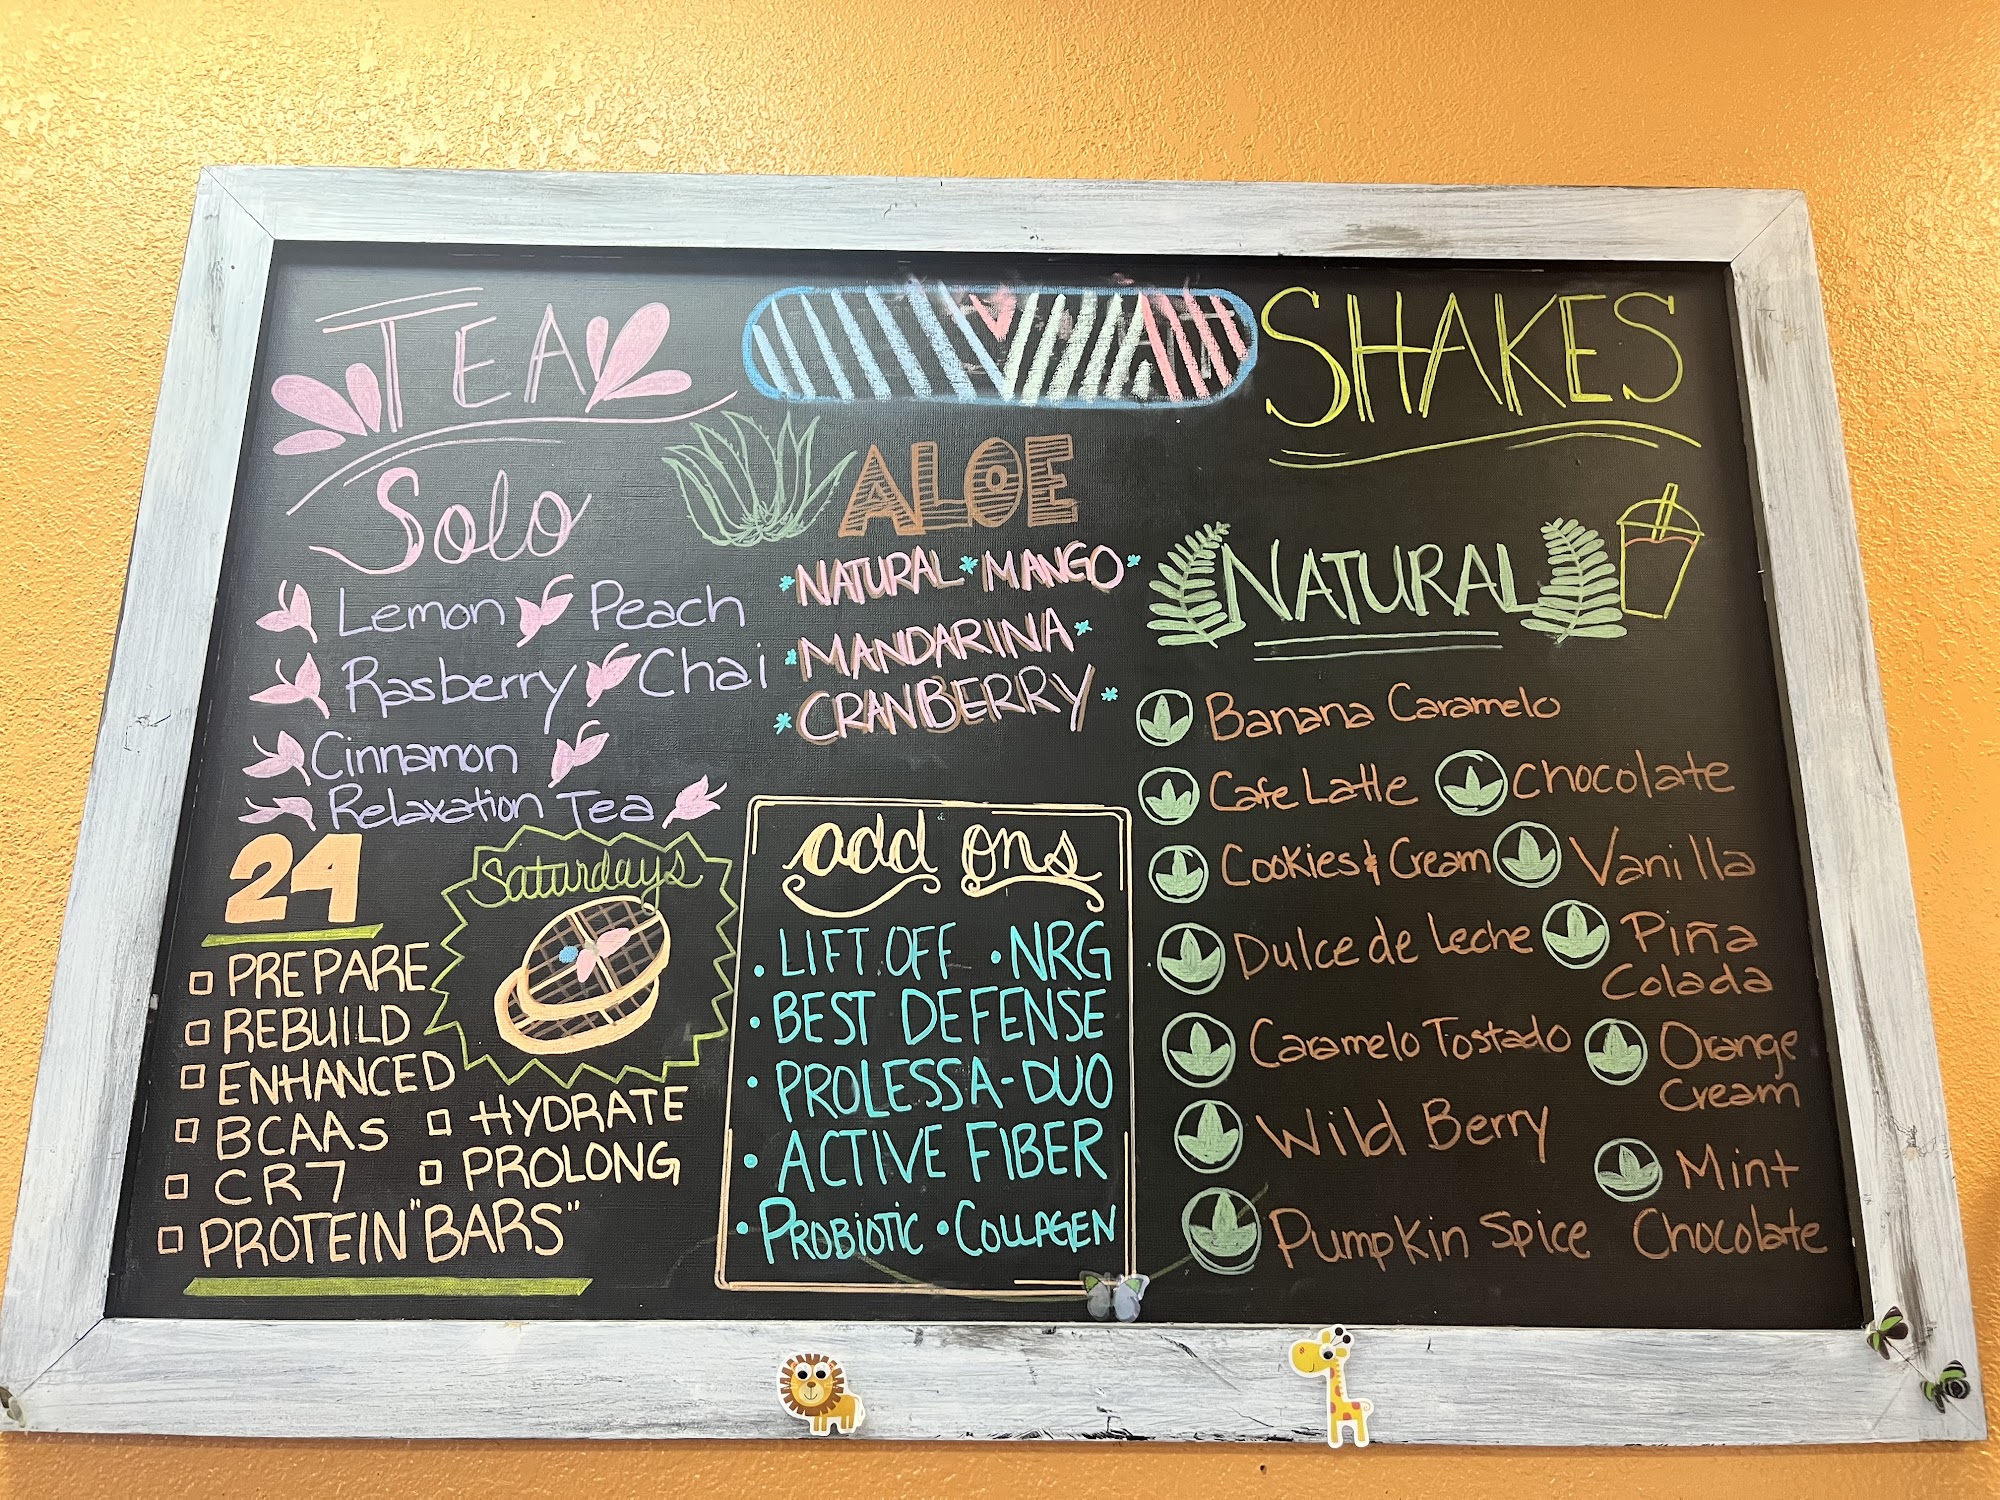 TEA
Solo
Lemon Peach
Rasberry Chai
Cinnamon
Relaxation Tea
24
PREPARE
REBUILD
ENHANCED
BCAAs
CR7
HYDRATE
PROLONG
PROTEIN "BARS"
Saturdays
ALOE
NATURAL * MANGO
MANDARINA
CRANBERRY
add ons
• LIFT OFF • NRG
• BEST DEFENSE
• PROLESSA-DUO
• ACTIVE FIBER
• PROBIOTIC • COLLAGEN
SHAKES
NATURAL
Banana Caramelo
Cafe Latte Chocolate
Cookies & Cream Vanilla
Dulce de Leche Piña
Colada
Caramelo Tostado Orange
Cream
Wild Berry
Mint
Pumpkin Spice Chocolate